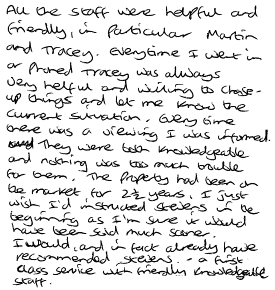 All the staff were helpful and
friendly, in particular Martin
and Tracey. Everytime I went in
or phoned Tracey was always
very helful and willing to chase-
up things and let me know the
current situation. Every time
there was a viewing I was informed.
They were both knowledgeable
and nothing was too much trouble
for them. The property had been on
the market for 2½ years, I just
wish I'd instructed Stevens in the
beginning as I'm sure it would
have been sold much sooner.
I would, and in fact already have
recommended Stevens - a first
class service with friendly knowledgeable
staff.